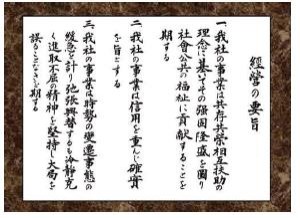 経営の要旨
一、我社の事業は共存共榮相互扶助の
理念に基いその强固隆盛を圖り
社會公共の福祉に貢献することを
期する
二、我社の事業は信用を重んじ確實
を旨とする
三、我社の事業は時勢の變遷事態の
緩急を計り弛張興廃するも冷静克
く進取不屈の精神を堅持し大局を
誤ることなきを期する